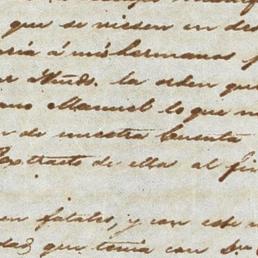 que se viesen en des
aria á mis hermanos p
añade. la orden que
ano Manuel lo que n
de nuestra cuenta
Extracto de ellas al fin
en fatales, y con este
dad que tenia con Su